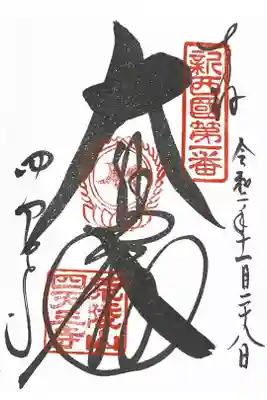 奉拝
新西国第一番
令和一年十一月二十八日
大
四天王寺
荒陵山
四天王寺